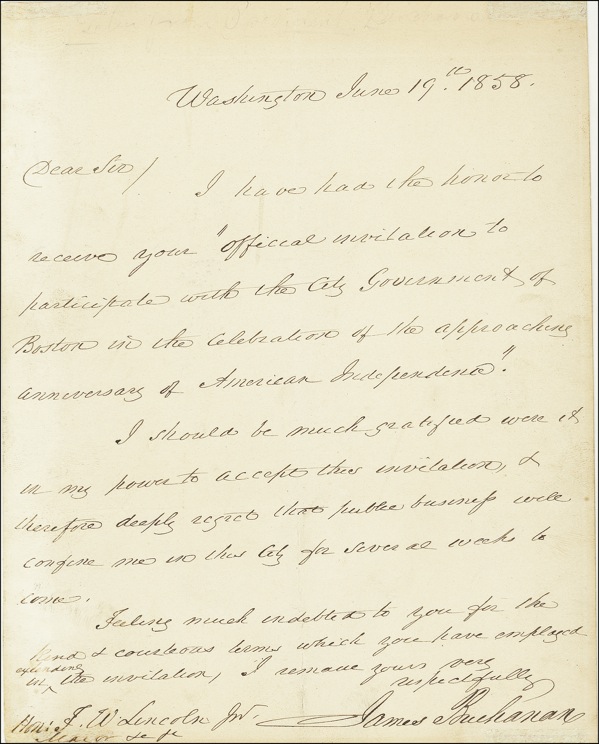 Washington June 19.th 1858.
Dear Sir/ I have had the honor to
receive your "official invitation to
participate with the City Government of
Boston in the celebration of the approaching
anniversary of American Independence."
I should be much gratified were it
in my power to accept this invitation, &
therefore deeply regret that public business will
confine me in this City for several weeks to
come.
Feeling much indebted to you for the
kind & courteous terms which you have employed
extending
in ^ the invitation, I remain yours very
respectfully
James Buchanan
Hon: F. W. Lincoln Jr.
Mayor &c &c